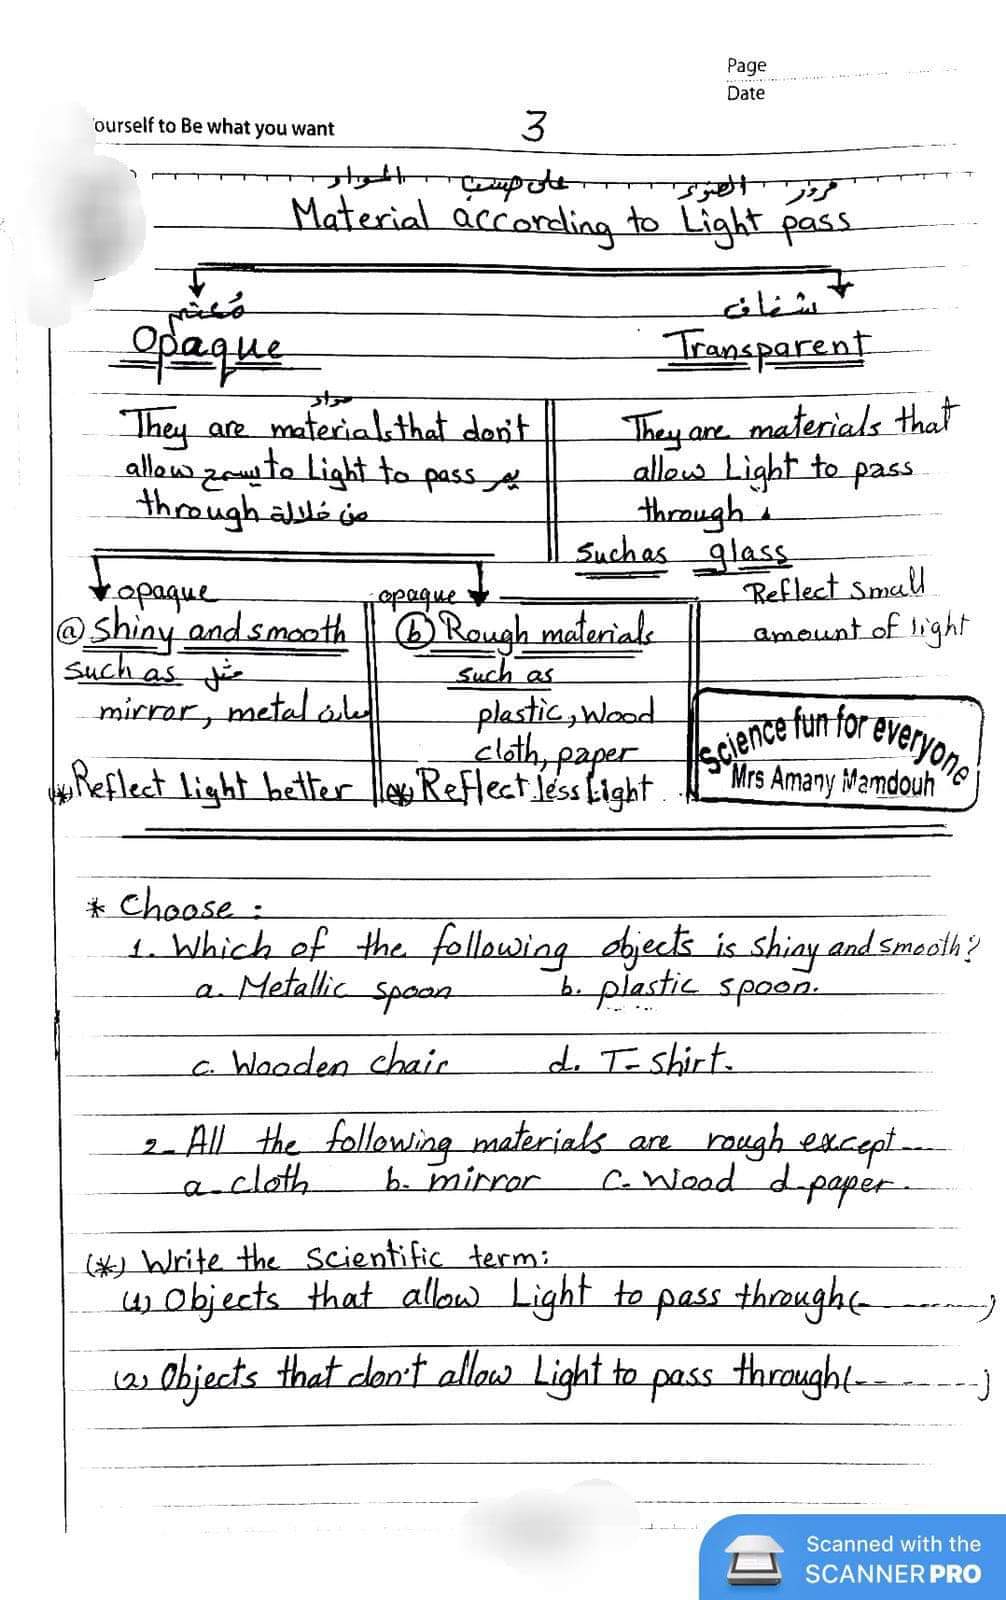 Page
Date
ourself to Be what you want
3
المواد على حسب مرور الضوء
Material according to Light pass
مُعتم
Opaque
شفاف
Transparent
مواد
They are materials that don't
allow يسمح to Light to pass يمر
through من خلاله
They are materials that
allow Light to pass
through
such as glass
Reflect small
amount of light
opaque
(a) Shiny and smooth
such as مثل
mirror, metal معادن
(*) Reflect Light better
opaque
(b) Rough materials
such as
plastic, Wood
cloth, paper
(*) Reflect less Light
Science fun for everyone
Mrs Amany Mamdouh
* Choose :
1. Which of the following objects is shiny and smooth?
a. Metallic spoon b. plastic spoon.
c. Wooden chair d. T-shirt.
2- All the following materials are rough except ----
a- cloth b- mirror C- Wood d- paper.
(*) Write the scientific term:
(1) Objects that allow Light to pass through (--------)
(2) Objects that don't allow Light to pass through (--------)
Scanned with the
SCANNER PRO